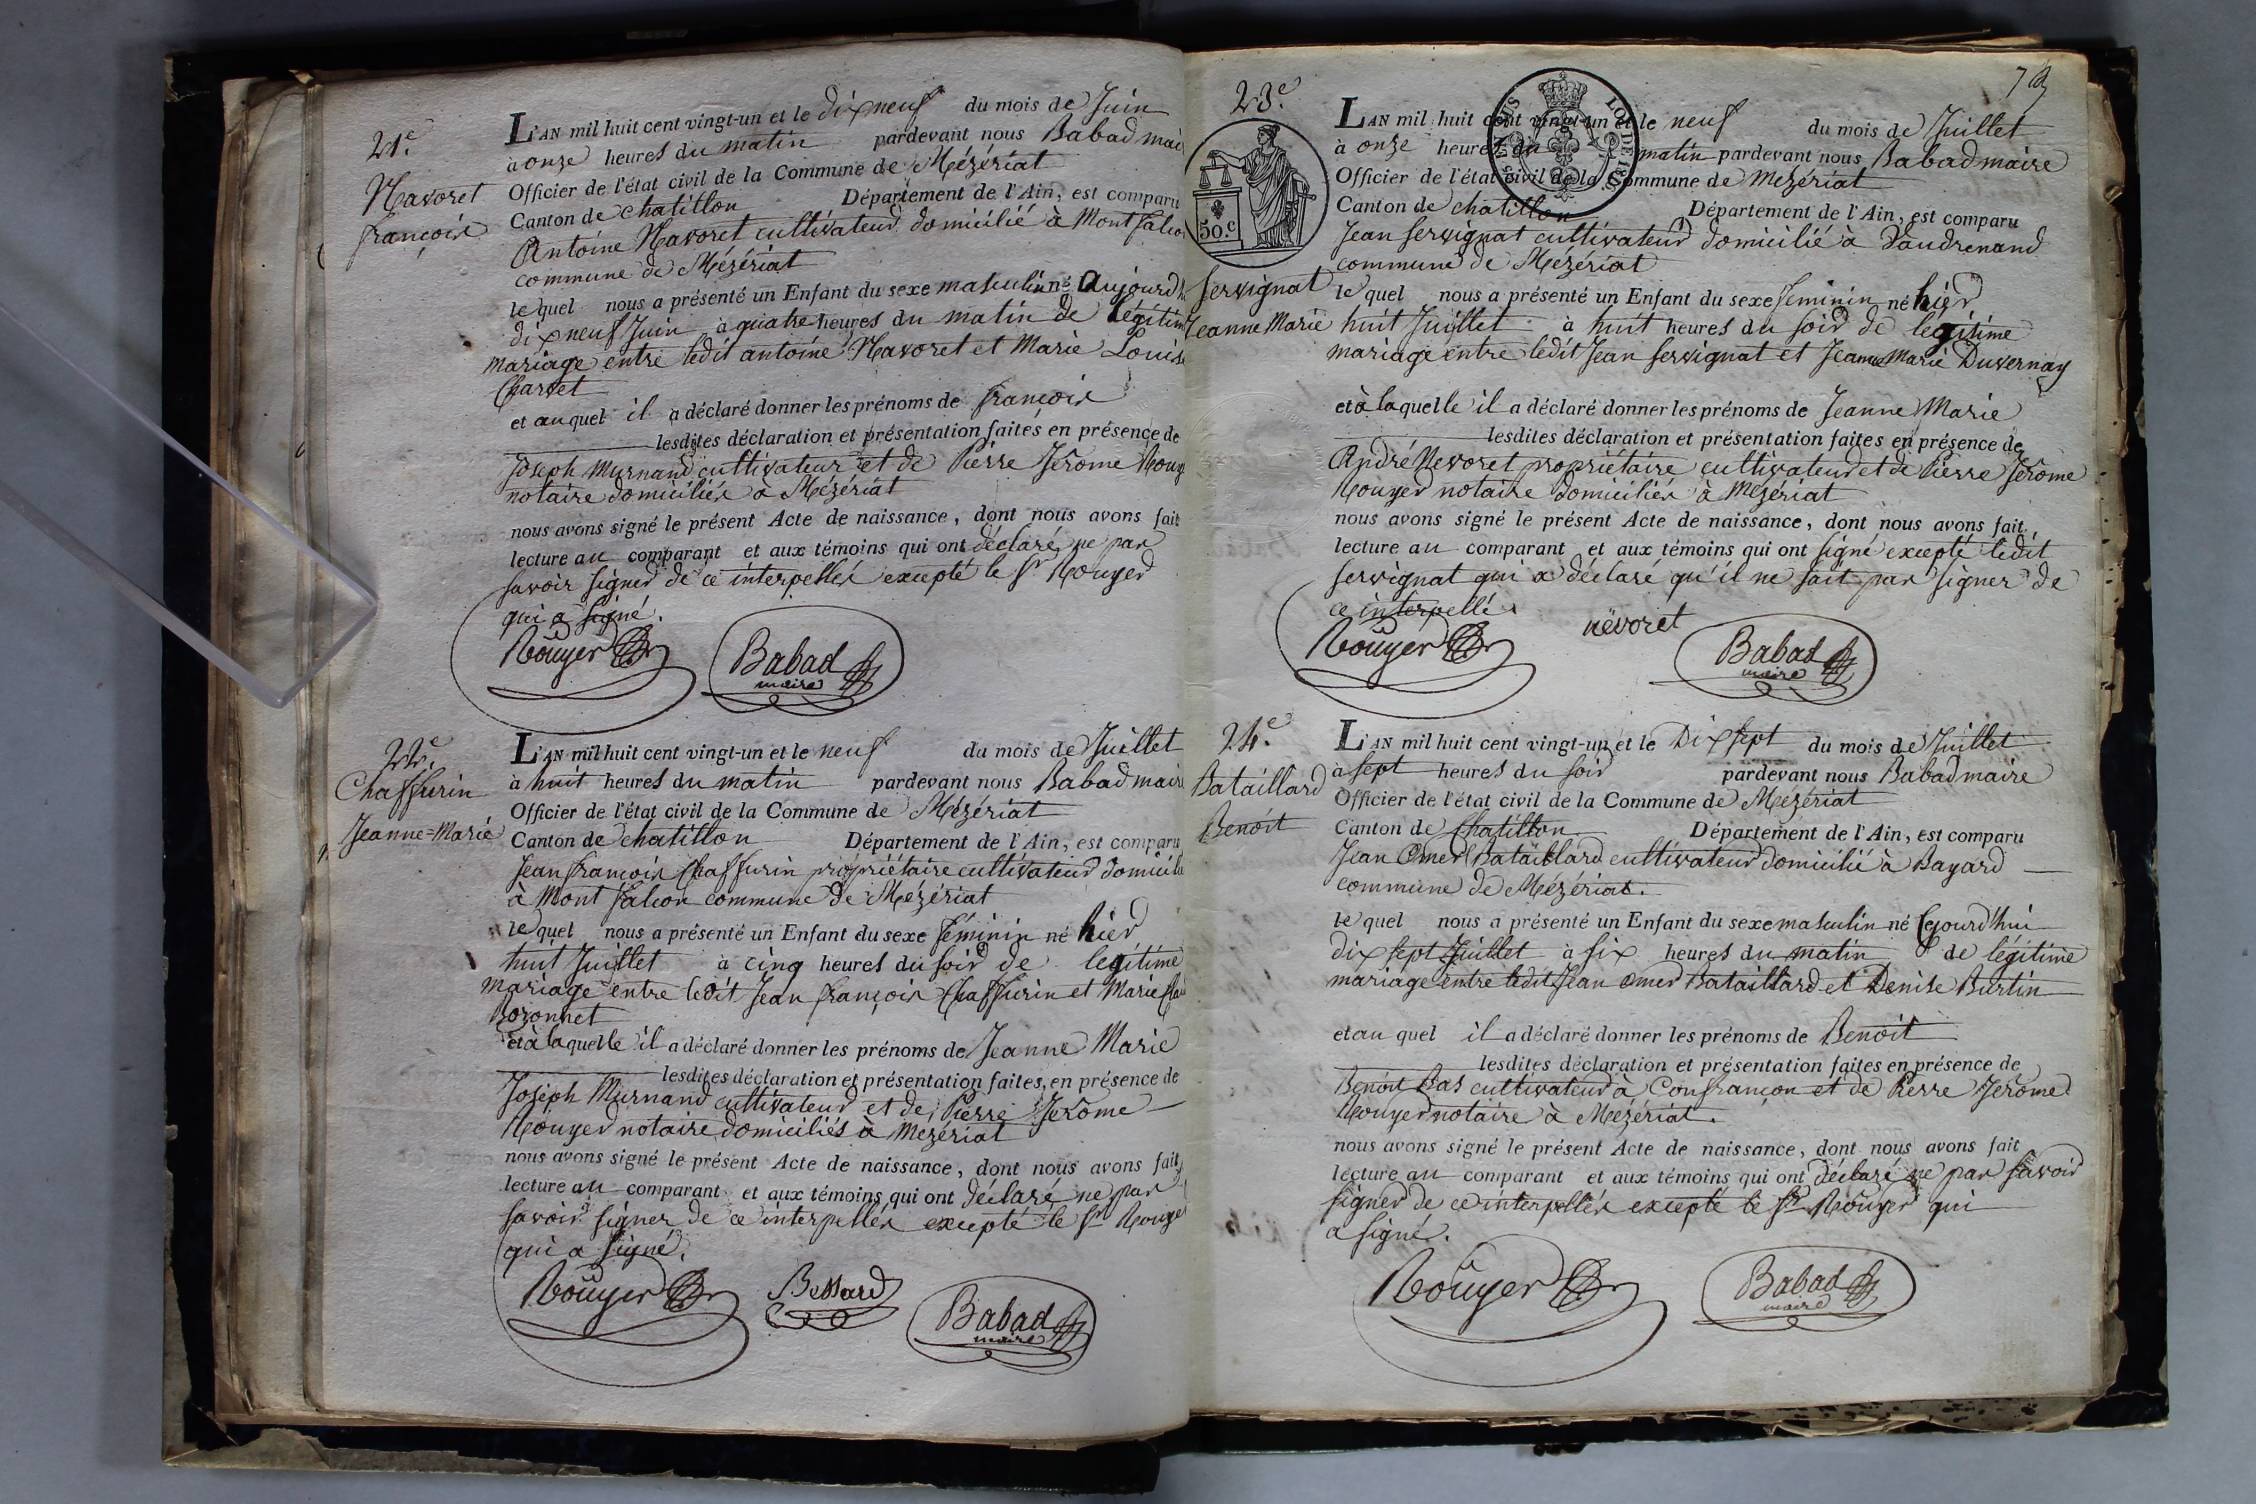 21e.
Navoret
françois
L'AN mil huit cent vingt-un et le dix neuf du mois de Juin
à onze heures du matin pardevant nous Babad mai
Officier de l'état civil de la Commune de Mézériat
Canton de chatillon Département de l'Ain, est comparu
Antoine Navoret cultivateur domicilié à Montfalco
commune de Mézériat
le quel nous a présenté un Enfant du sexe masculin né aujourd'h
dix neuf Juin à quatre heures du matin de légitim
mariage entre ledit antoine Navoret et Marie Louis
Charvet
et au quel il a déclaré donner les prénoms de françois
lesdites déclaration et présentation faites en présence de
Joseph Murnand cultivateur et de Pierre Jerôme Rouy
notaire domiciliés à Mézériat
nous avons signé le présent Acte de naissance, dont nous avons fait
lecture au comparant et aux témoins qui ont déclaré ne pas
savoir signer de ce interpellés excepté le Sr Rouyer
qui a signé.
Roüyer
Babad
maire
22e.
Chaffurin
Jeanne=Marie
L'AN mil huit cent vingt-un et le neuf du mois de Juillet
à huit heures du matin pardevant nous Babad mair
Officier de l'état civil de la Commune de Mézériat
Canton de chatillon Département de l'Ain, est comparu
Jean françois Chaffurin propriétaire cultivateur domicili
à Mont falcon commune de Mézériat
le quel nous a présenté un Enfant du sexe féminin né hier
huit Juillet à cinq heures du soir de legitime
mariage entre ledit Jean françois Chaffurin et Marie
Bozonnet
et à laquelle il a déclaré donner les prénoms de Jeanne Marie
lesdites déclaration et présentation faites, en présence de
Joseph Murnand cultivateur et de Pierre Jerôme
Rouyer notaire domiciliés à Mezériat
nous avons signé le présent Acte de naissance, dont nous avons fait
lecture au comparant et aux témoins qui ont déclaré ne pas
savoir signer de ce interpellés excepté le Sr Rouye
qui a signé.
Roüyer
Bessard
Babad
maire
73
23e.
50.c
Servignat
Jeanne Marie
L'AN mil huit cent vingt-un et le neuf du mois de Juillet
à onze heures du matin pardevant nous Babad maire
Officier de l'état civil de la Commune de Mezériat
Canton de chatillon Département de l'Ain, est comparu
Jean Servignat cultivateur domicilié à Vaudrenand
commune de Mezériat
le quel nous a présenté un Enfant du sexe feminin né hier
huit Juillet à huit heures du soir de légitime
mariage entre ledit Jean Servignat et Jeanne Marie Duvernay
et à laquelle il a déclaré donner les prénoms de Jeanne Marie
lesdites déclaration et présentation faites en présence de
André Nevoret propriétaire cultivateur et de Pierre Jerôme
Rouyer notaire domiciliés à Mezériat
nous avons signé le présent Acte de naissance, dont nous avons fait
lecture au comparant et aux témoins qui ont signé excepté ledit
Servignat qui a déclaré qu'il ne sait pas signer de
ce interpellé.
Roüyer
nëvoret
Babad
maire
24e.
Bataillard
Benoit
L'AN mil huit cent vingt-un et le Dix sept du mois de Juillet
à sept heures du soir pardevant nous Babad maire
Officier de l'état civil de la Commune de Mezériat
Canton de Chatillon Département de l'Ain, est comparu
Jean Omer Bataillard cultivateur domicilié à Bayard
commune de Mézériat.
le quel nous a présenté un Enfant du sexe masculin né Cejourd'hui
Dix sept Juillet à six heures du matin de légitime
mariage entre ledit Jean omer Bataillard et Denise Burtin
et au quel il a déclaré donner les prénoms de Benoit
lesdites déclaration et présentation faites en présence de
Benoit Bas cultivateur à Confrançon et de Pierre Jerôme
Rouyer notaire à Mezériat.
nous avons signé le présent Acte de naissance, dont nous avons fait
lecture au comparant et aux témoins qui ont déclaré ne pas savoir
signer de ce interpellés excepté le Sr Rouyer qui
a signé.
Roüyer
Babad
maire